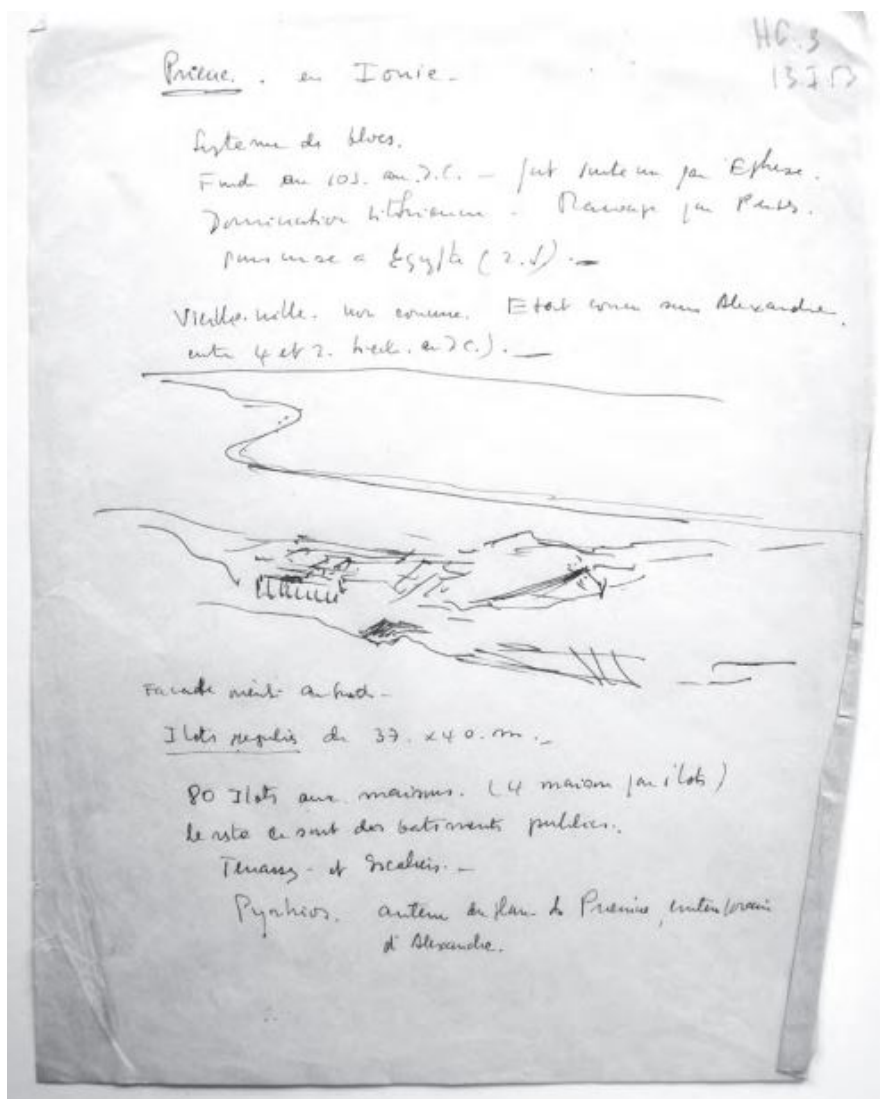 HG.3
13 I 53
Priene. en Ionie-
Systeme de blocs.
Fond au 10s. av. J.C. - fut par Ephese.
Domination - par Perses.
puis a Egypte (2.s).-
Vieille. ville. non connue. Etait sous Alexandre
entre 4 et 2. siecle. av J C.).-
Facade
Ilots reguliers de 37. x 40. m.-
80 Ilots aux maisons. (4 maisons par ilots)
le reste ce sont des batiments publics.
Terasses- et Escaliers.-
Pythios. auteur du plan de Priene, contemporain
d'Alexandre.